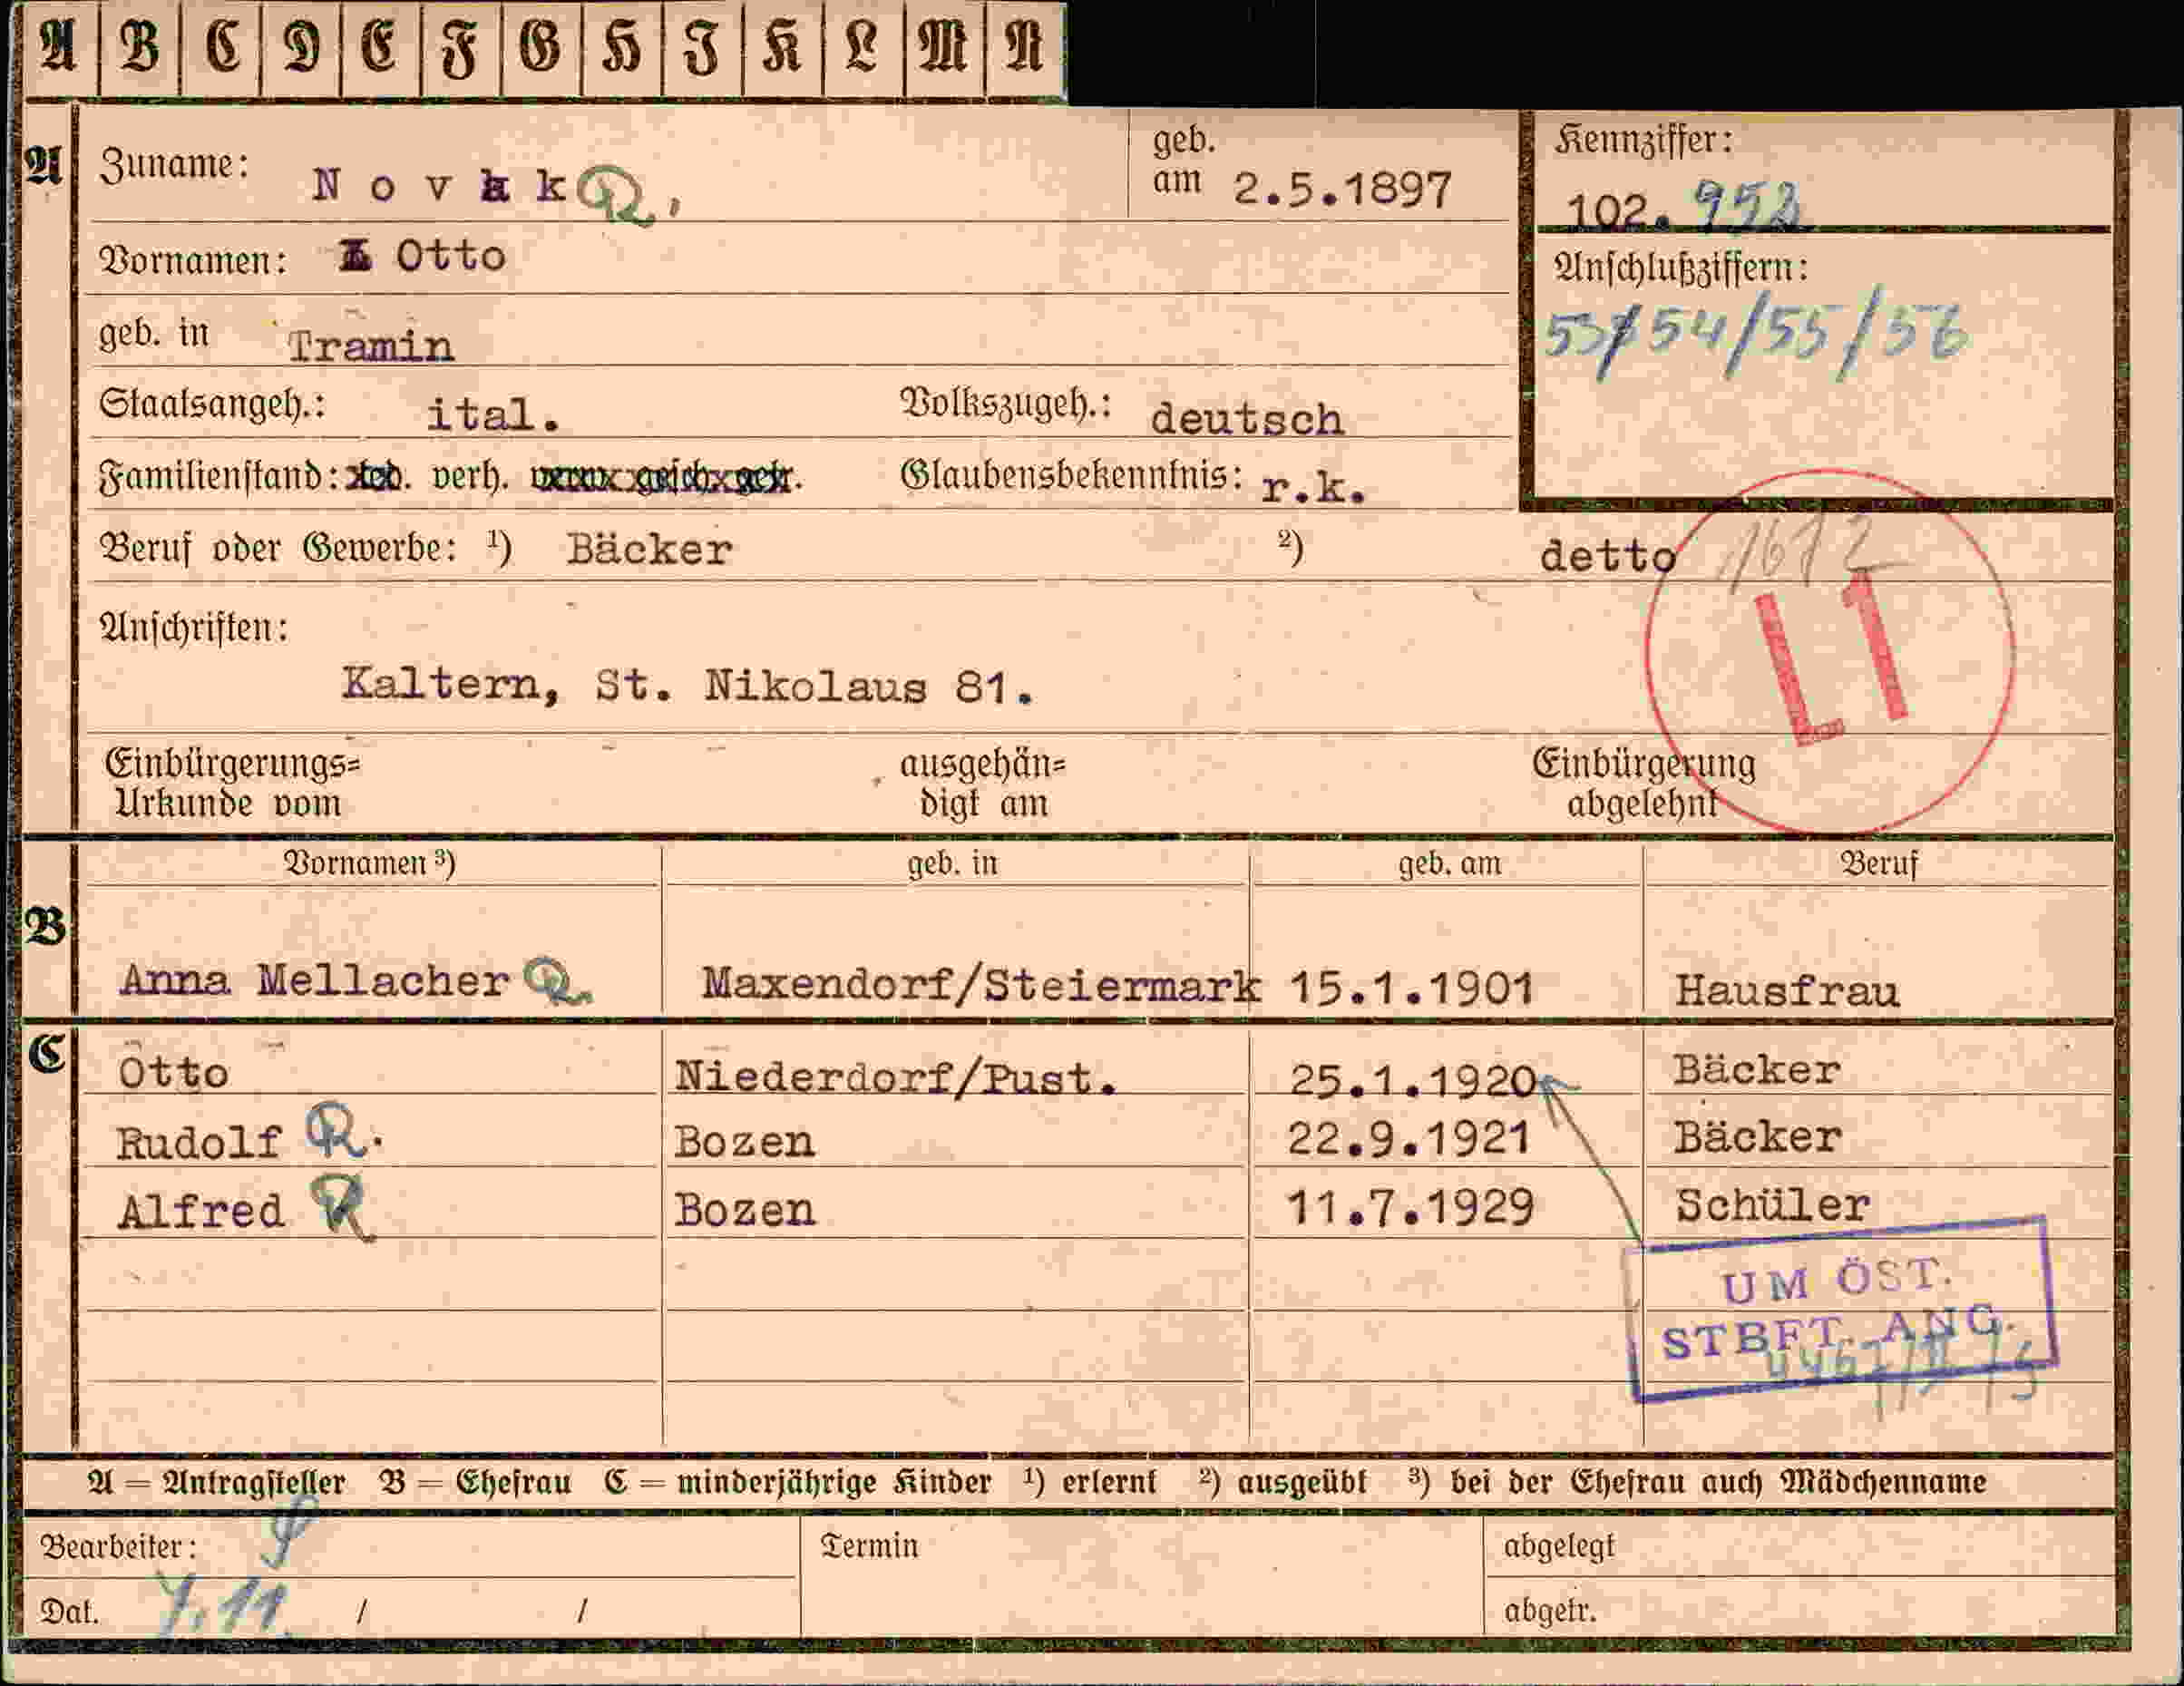 A B C D E F G H I K L M N
A Zuname: Novak geb. am 2.5.1897
Kennziffer: 102.952
Vornamen: Otto
Anschlußziffern:
53/54/55/56
geb. in Tramin
Staatsangeh.: ital. Volkszugeh.: deutsch
Familienstand: led. verh. verw. gesch. getr. Glaubensbekenntnis: r.k.
Beruf oder Gewerbe: ¹) Bäcker ²) detto 1672
Anschriften:
L1
Kaltern, St. Nikolaus 81.
Einbürgerungs= ausgehän= Einbürgerung
Urkunde vom digt am abgelehnt
Vornamen ³) geb. in geb. am Beruf
B
Anna Mellacher Maxendorf/Steiermark 15.1.1901 Hausfrau
C Otto Niederdorf/Pust. 25.1.1920 Bäcker
Rudolf R. Bozen 22.9.1921 Bäcker
Alfred R Bozen 11.7.1929 Schüler
UM ÖST.
STBFT. ANG.
A = Antragsteller B = Ehefrau C = minderjährige Kinder ¹) erlernt ²) ausgeübt ³) bei der Ehefrau auch Mädchenname
Bearbeiter: Termin abgelegt
Dat. 7.11. / / abgetr.